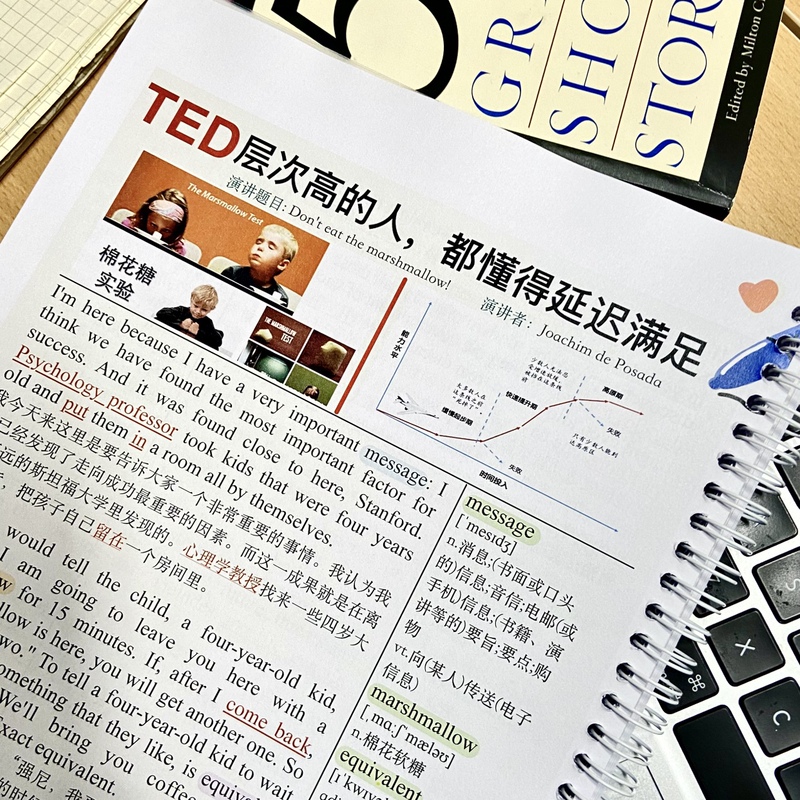 5
GR
SHO
STOR
Edited by Milton C
TED层次高的人，都懂得延迟满足
演讲题目: Don't eat the marshmallow!
演讲者： Joachim de Posada
The Marshmallow Test
棉花糖
实验
THE MARSHMALLOW
TEST
能力水平
缓慢起步期
快速提升期
高原期
失败
失败
时间投入
I'm here because I have a very important message: I
think we have found the most important factor for
success. And it was found close to here, Stanford.
Psychology professor took kids that were four years
old and put them in a room all by themselves.
我今天来这里是要告诉大家一个非常重要的事情。我认为我
已经发现了走向成功最重要的因素。而这一成果就是在离
远的斯坦福大学里发现的。心理学教授找来一些四岁大
把孩子自己留在一个房间里。
would tell the child, a four-year-old kid,
I am going to leave you here with a
w for 15 minutes. If, after I come back,
llow is here, you will get another one. So
wo." To tell a four-year-old kid to wait
omething that they like, is equival
We'll bring you coffee
exact equivalent.
“强尼，我
的时候
message
['mesɪdʒ]
n.消息;(书面或口头
的)信息;音信;电邮(或
手机)信息;(书籍、演
讲等的)要旨;要点;购
物
vt.向(某人)传送(电子
信息)
marshmallow
[ˌmɑːʃˈmæləʊ]
n.棉花软糖
equivalent
[ɪˈkwɪv
⌘
X
C